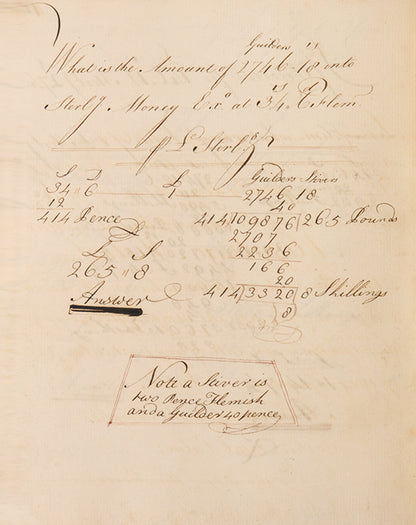 Guilders S
What is the Amount of 2746 " 18 into
Sterlg Money Exo at 34 " 6 Flem
p £ Sterlg
S D £ Guilders Stivers
34 " 6 2746 18
12 40
414 Pence 414)109876(265 Pounds
2707
£ S 2236
265 " 8 166
20
Answer 414)3320(8 Shillings
(8)
Note a Stiver is
two Pence Flemish
and a Guilder 40 pence